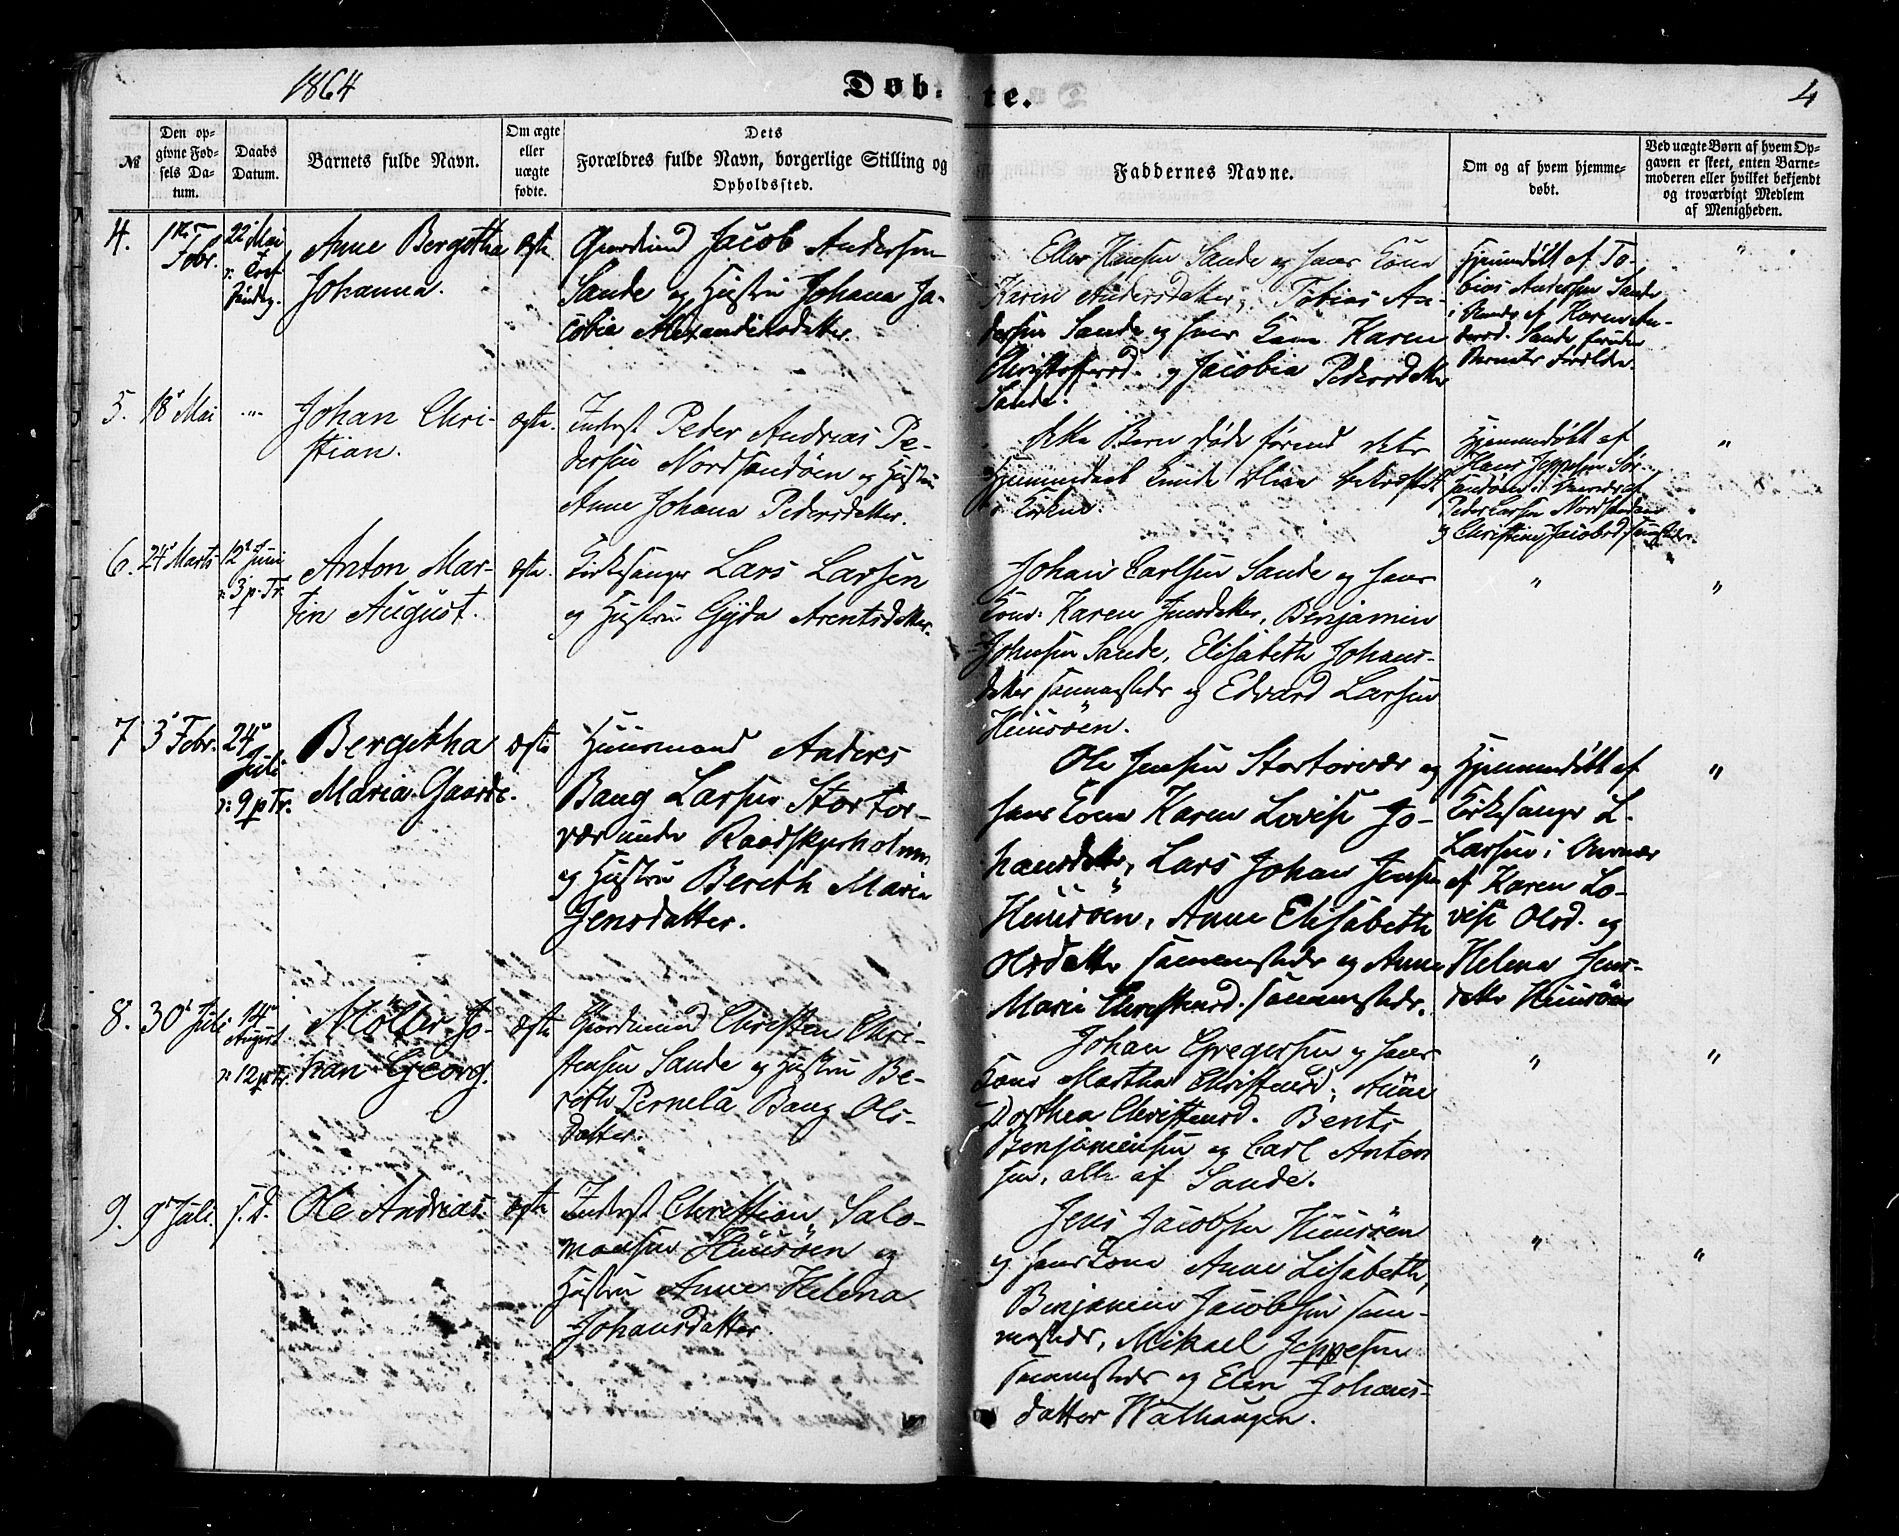 1864
Døbte.
4
№
Den opgivne Fødsels Datum.
Daabs Datum.
Barnets fulde Navn.
Om ægte eller uægte fødte.
Dets Forældres fulde Navn, borgerlige Stilling og Opholdssted.
Faddernes Navne.
Om og af hvem hjemmedøbt.
Ved uægte Børn af hvem Opgaven er skeet, enten Barnemoderen eller hvilket bekjendt og troværdigt Medlem af Menigheden.
4.
1ste Febr.
22 Mai
Tref
Søndag.
Anne Bergitha
Johanna.
ægte
Gaardmand Jacob Andersen
Sande og Hustru Johana Ja-
cobia Alexandersdatter.
Eller Hansen Sande og hans Kone
Karen Andersdatter, Tobias An-
dersen Sande og hans Kone Karen
Christoffersd. og Jacobia Pedersdatter
Sande.
Hjemmedøbt af To-
bias Andersen Sande
Karen An-
dersd. Sande foruden
Barnets Forældre.
"
5.
18 Mai
"
Johan Chri-
stian.
ægte.
Inderst Peder Andreas Pe-
dersen Nordsandøen og Hustru
Anne Johana Pedersdatter.
dette Barn døde førend det
Hjemmedaab kunde blive bekræftet
i Kirken.
Hjemmedøbt af
Hans Jeppesen Sør-
sandøen i Nærvær af
Peder Larsen Nordsandøen
og Christine Jacobsd.
"
6.
24 Marts
12 Juni
3 p. Tr.
Anton Mar-
tin August.
ægte.
Kirkesanger Lars Larsen
og Hustru Gyda Arentsdatter.
Johan Carlsen Sande og hans
Kone Karen Jensdatter, Benjamin
Johnsen Sande, Elisabeth Johans-
datter sammesteds og Edvard Larsen
Huusøen.
"
"
7
3 Febr.
24
Juli
9 p. Tr.
Bergitha
Maria Gaarde.
ægte
Huusmand Anders
Bang Larsen Stortor-
vær under Raadskjærholmen
og Hustru Bereth Maria
Jensdatter.
Ole Jensen Stortorvær og
hans Kone Karen Lovise Jo-
hansdatter, Lars Johan Jensen
Huusøen, Anne Elisabeth
Olsdatter sammesteds og Anne
Maria Christensd. sammesteds.
Hjemmedøbt af
Kirkesanger L.
Larsen i Overvær
af Karen Lo-
vise Olsd. og
Helena Jens-
datter Huusøen
"
8.
30 Juli
14
August
12 p. Tr.
Möller Jo-
han Georg.
ægte
Gaardmand Christen Chri-
stensen Sande og Hustru Be-
reth Pernela Bang Ols-
datter.
Johan Gregersen og hans
Kone Martha Christensd., Anne
Dorthea Christensd. Bents
Benjaminsen og Carl Anton
sen, alle af Sande.
"
"
9.
9 Juli.
s. D.
Ole Andreas.
ægte
Inderst Christian Salo-
monsen Huusøen og
Hustru Anne Helena
Johansdatter.
Jens Jacobsen Huusøen
og hans Kone Anne Lisabeth,
Benjamin Jacobsen sam-
mesteds, Mikael Jeppesen
sammesteds og Elen Johans-
datter Walhaugen.
"
"